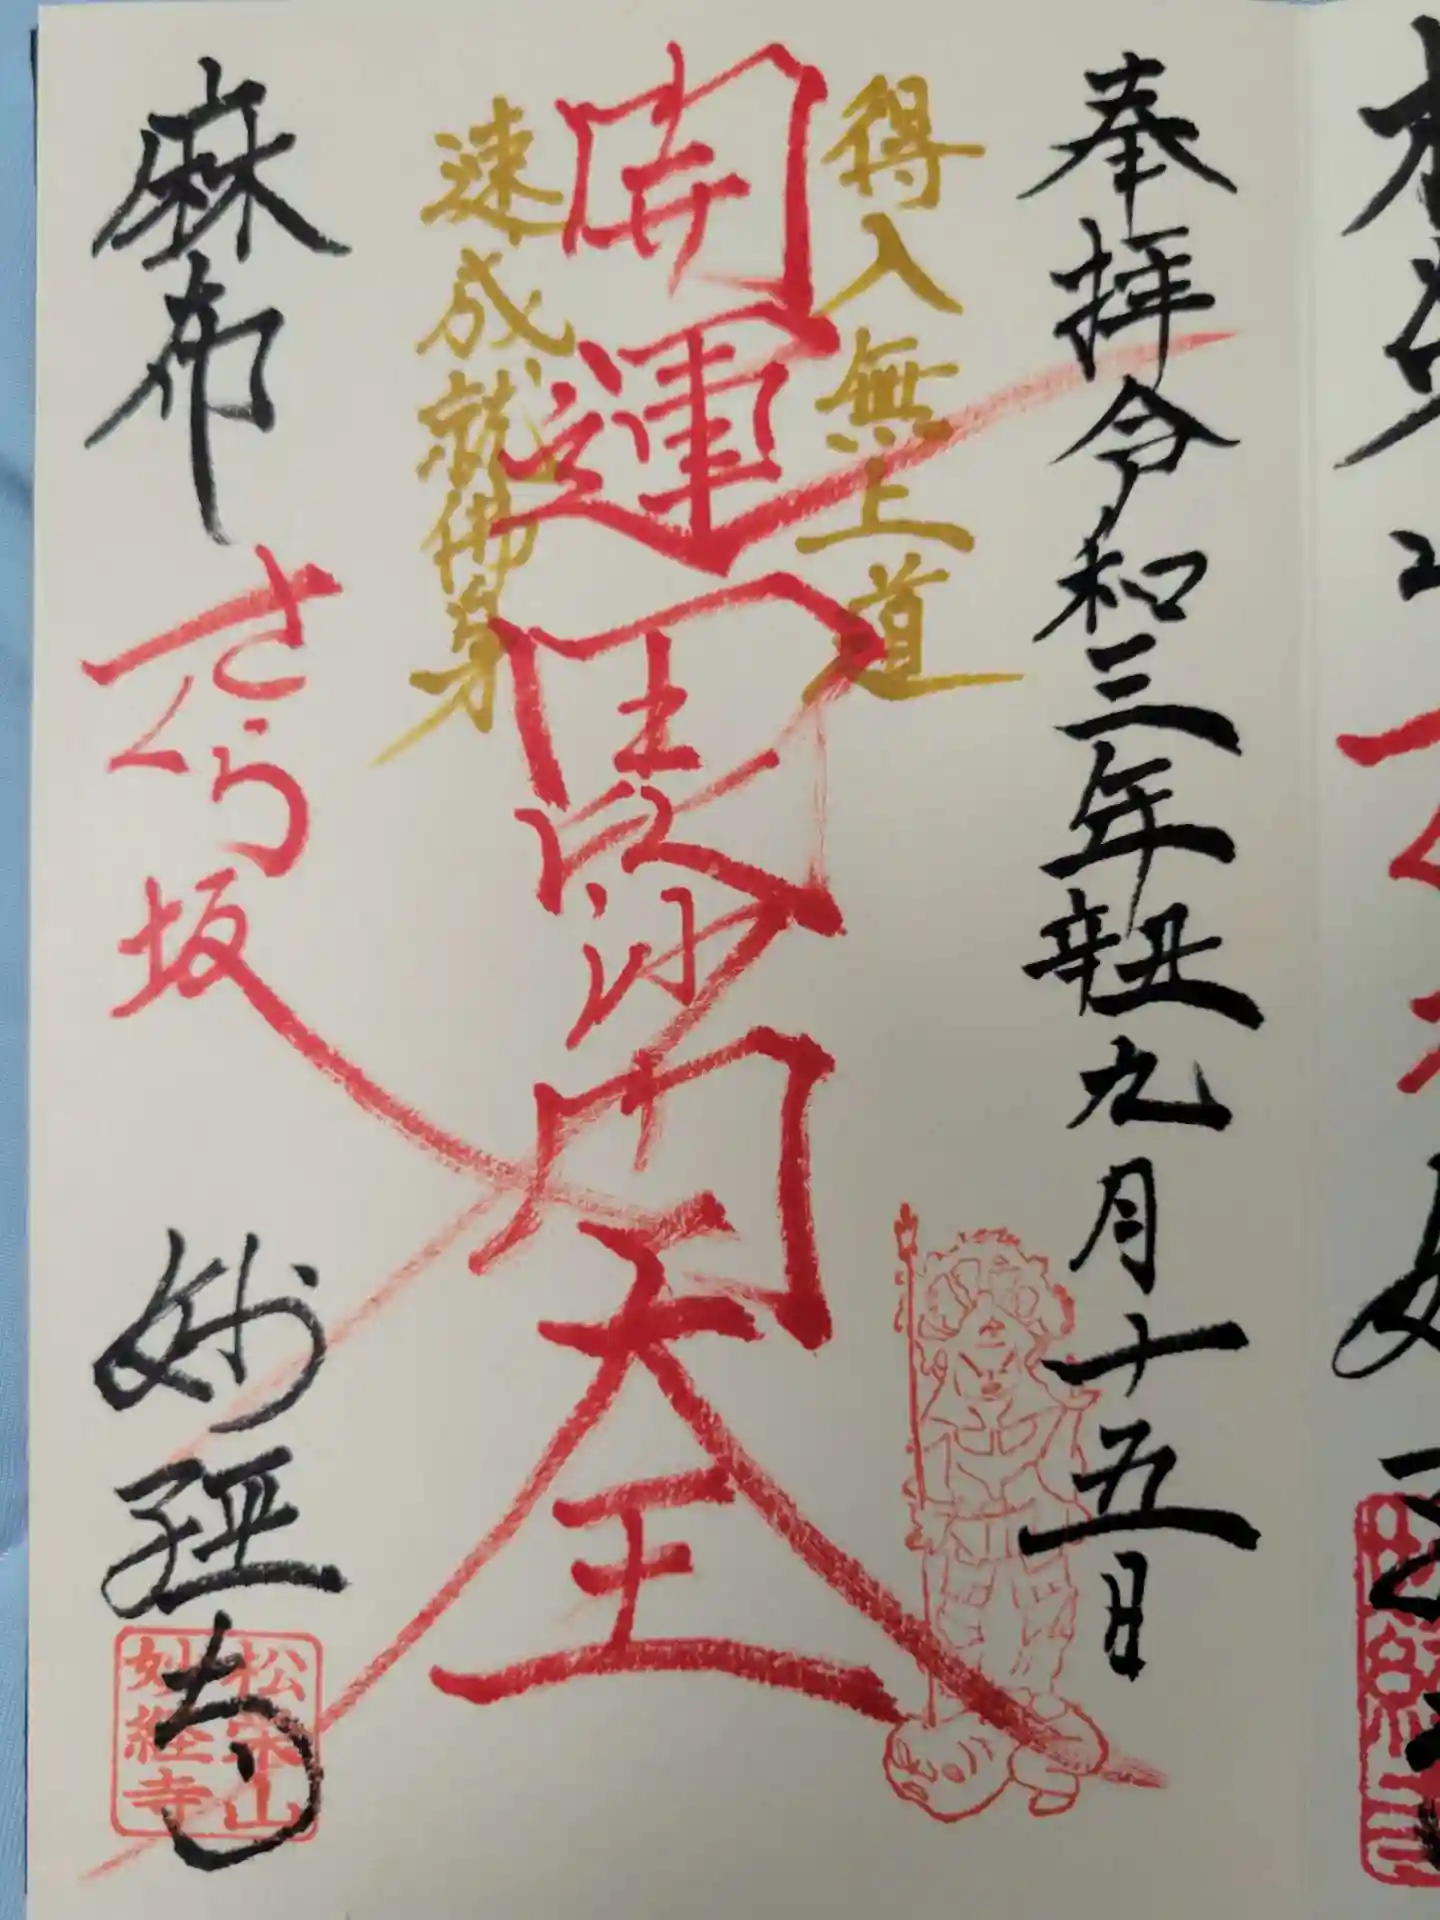 奉拝令和三年辛丑九月十五日
得入無上道
開運毘沙門天王
速成就佛身
麻布さくら坂 妙経寺
松栄山
妙経寺